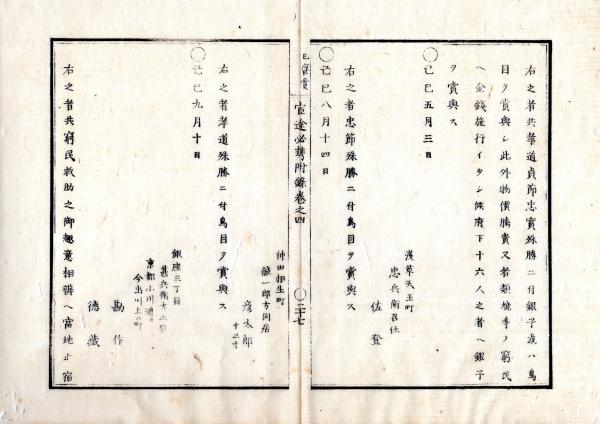 右之者共孝道貞節忠實殊勝ニ付銀子或ハ鳥
目ヲ賞與シ此外物價騰貴又者類燒等ノ窮民
ヘ金錢施行イタシ候府下十六人之者ヘ銀子
ヲ賞與ス
○己巳五月三日
淺草天王町
忠兵衞召仕
佐登
右之者忠節殊勝ニ付鳥目ヲ賞與ス
○己巳八月十四日
官途必携附錄卷之四
○二十七
神田相生町
鐵一郎方同居
彦太郎
右之者孝道殊勝ニ付鳥目ヲ賞與ス
○己巳九月十日
銀座三丁目
甚兵衞方止宿
京都小川通
今出川上ル町
勘作
德藏
右之者共窮民救助之御趣意相辨ヘ當地止宿